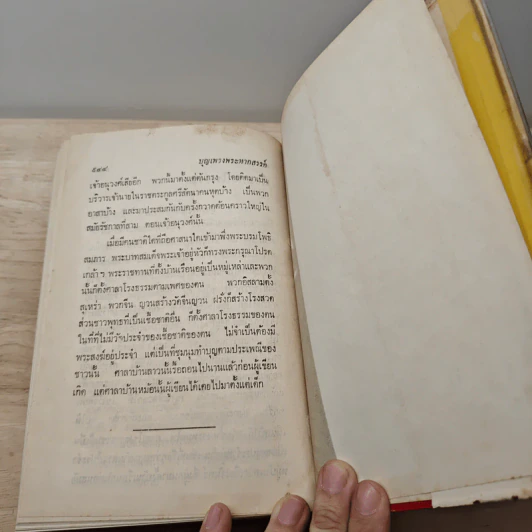 ๕๙๘ บุญเพรงพระหากสรรค์
เจ้าอนุวงศ์เสียอีก พวกนี้มาตั้งแต่ต้นกรุง โดยติดมาเป็น
บริวารเจ้านายในราชตระกูลศรีสัตนาคนหุตบ้าง เป็นพวก
อาสาบ้าง และมาประสมกันกับครั้งกวาดต้อนคราวใหญ่ใน
สมัยรัชกาลที่สาม ตอนเจ้าอนุวงศ์นั้น
เมื่อมีคนชาติใดที่ถือศาสนาใดเข้ามาพึ่งพระบรมโพธิ
สมภาร พระบาทสมเด็จพระเจ้าอยู่หัวก็ทรงพระกรุณาโปรด
เกล้าฯ พระราชทานที่ตั้งบ้านเรือนอยู่เป็นหมู่เหล่าและพวก
นั้นก็ตั้งศาลาโรงธรรมตามเพศของตน พวกอิสลามตั้ง
สุเหร่า พวกจีน ญวนสร้างวัดจีนญวน ฝรั่งก็สร้างโรงสวด
ส่วนชาวพุทธที่เป็นเชื้อชาติอื่น ก็ตั้งศาลาโรงธรรมของตน
ในที่ที่ไม่มีวัดประจำของเชื้อชาติของตน ไม่จำเป็นต้องมี
พระสงฆ์อยู่ประจำ แต่เป็นที่ชุมนุมทำบุญตามประเพณีของ
ชาวนั้น ศาลาบ้านลาวนั้นรื้อถอนไปนานแล้วก่อนผู้เขียน
เกิด แต่ศาลาบ้านหม้อนั้นผู้เขียนได้เคยไปมาตั้งแต่เด็ก